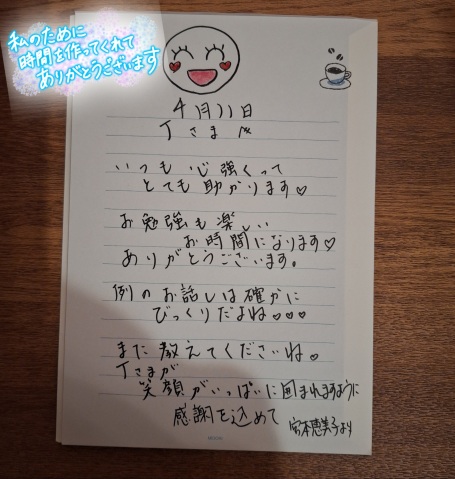 私のために
時間を作ってくれて
ありがとうございます
4月11日
Tさまへ
いつも心強くって
とても助かります♡
お勉強も楽しい
お時間になります♡
ありがとうございます。
例のお話しは確かに
びっくりだよね♡♡♡
また教えてくださいね♡
Tさまが
笑顔がいっぱいに囲まれますように
感謝を込めて
宮本恵美子より